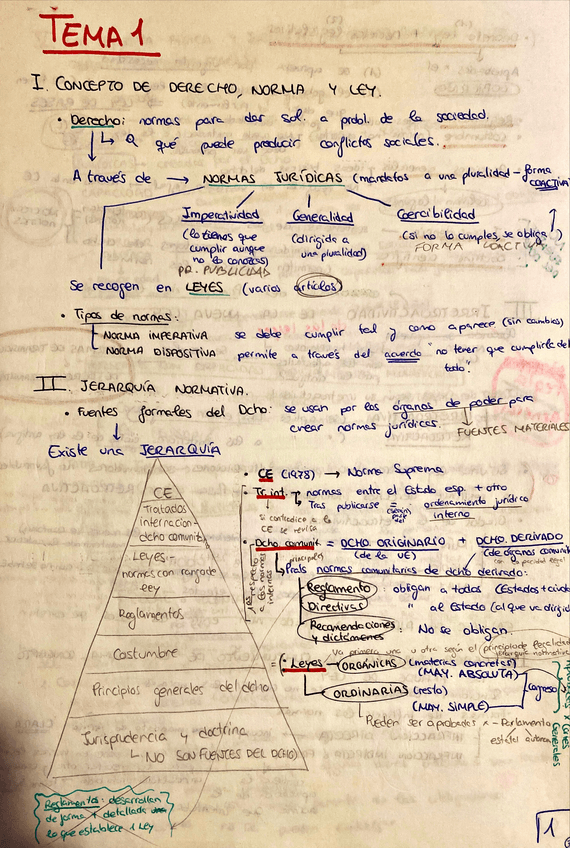 TEMA 1
I. CONCEPTO DE DERECHO, NORMA Y LEY.
• Derecho: normas para dar sol. a probl. de la sociedad.
↳ Q qué puede producir conflictos sociales.
A través de → NORMAS JURÍDICAS (mandatos a una pluralidad - forma COACTIVA
Imperatividad Generalidad Coercibilidad
(lo tienes que cumplir aunque no lo conozcas) (dirigida a una pluralidad) (si no lo cumples, se obliga)
PR. PUBLICIDAD
FORMA COACTIVA
Se recogen en LEYES (varios artículos)
• Tipos de normas:
NORMA IMPERATIVA se debe cumplir tal y como aparece (sin cambios)
NORMA DISPOSITIVA permite a través del acuerdo "no tener que cumplirla del todo".
II. JERARQUÍA NORMATIVA.
• Fuentes formales del Dcho: se usan por los órganos de poder para
crear normas jurídicas.
FUENTES MATERIALES
Existe una JERARQUÍA
CE
Tratados
internacion-
dcho comunit.
Leyes-
normas con rango de
ley
Reglamentos
Costumbre
Principios generales del dcho
Jurisprudencia y doctrina
└ NO SON FUENTES DEL DCHO)
• CE (1978) → Norma Suprema
• Tr. int. normas entre el Estado esp. + otro
Tras publicarse = ordenamiento jurídico
interno
si contradice a la
CE se revisa
• Dcho comunit. = DCHO ORIGINARIO + DCHO. DERIVADO
(de la UE) (de órganos comunit
Prals normas comunitarias de dcho derivado:
Reglamento: obligan a todos (Estados + ciud
Directivas " al Estado (al que va dirigid
Recomendaciones
y dictámenes: No se obligan.
Va primero una u otra según el principio de
• Leyes ORGÁNICAS (materias concretas)
(MAY. ABSOLUTA)
ORDINARIAS (resto)
(MAY. SIMPLE)
Congreso
Generales
Pueden ser aprobadas x - Parlamento
estatal
Reglamentos: desarrollan
de forma + detallada
lo que establece 1 ley
1